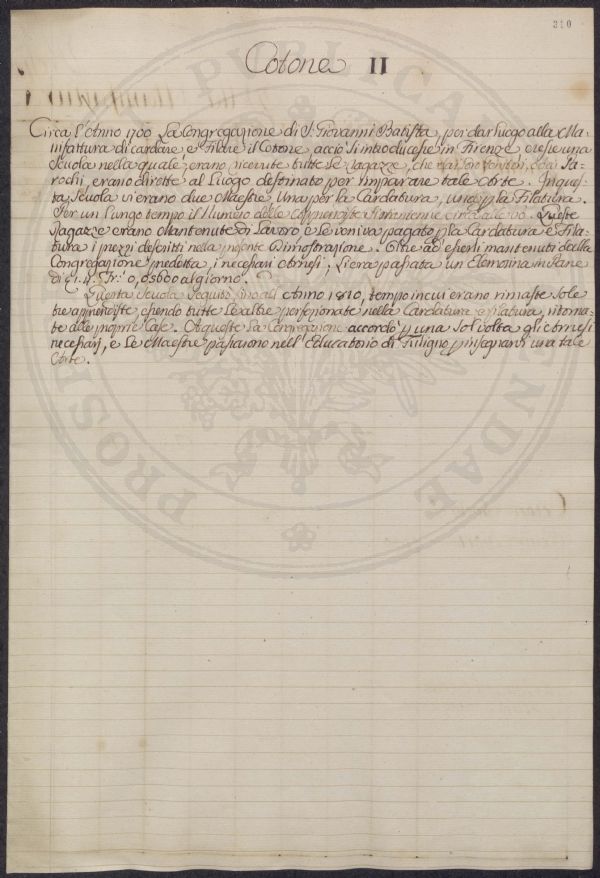 310
Cotone II
Circa l'Anno 1700 La Congregazione di S. Giovanni Batista, per dar luogo alla Ma-
nifattura di cardare e Filare il Cotone, acciò s'introducesse in Firenze eresse una
Scuola nella quale, erano ricevute tutte le Ragazze, che dai lor Genitori, o dai Pa-
rochi, erano dirette al Luogo destinato per imparare tale Arte. In ques-
ta Scuola vi erano due Maestre Una per la Cardatura, una p. la Filatura.
Per un Lungo tempo il Numero delle Apprendiste si mantenne circa alle 60. Queste
Ragazze erano Mantenute di Lavoro e le veniva pagato p. la Cardatura e Fila-
tura i prezzi descritti nella presente Dimostrazione. Oltre ad esserli mantenuti dalla
Congregazione predetta, i necessari Arnesi; Li era passata un Elemosina in Pane
di 1.4. Fr. 0,05600 al giorno.
Questa Scuola Seguitò fino all' Anno 1810, tempo in cui erano rimaste sole
tre apprendiste, essendo tutte le altre perfezionate nella Cardatura e filatura, ritorna-
te alle proprie Case. A queste La Congregazione accordò p. una sol volta gli Arnesi
necessarj, e le Maestre passarono nell' Educatorio di Fuligno p. insegnarvi una tale
Arte.
PUBLICA